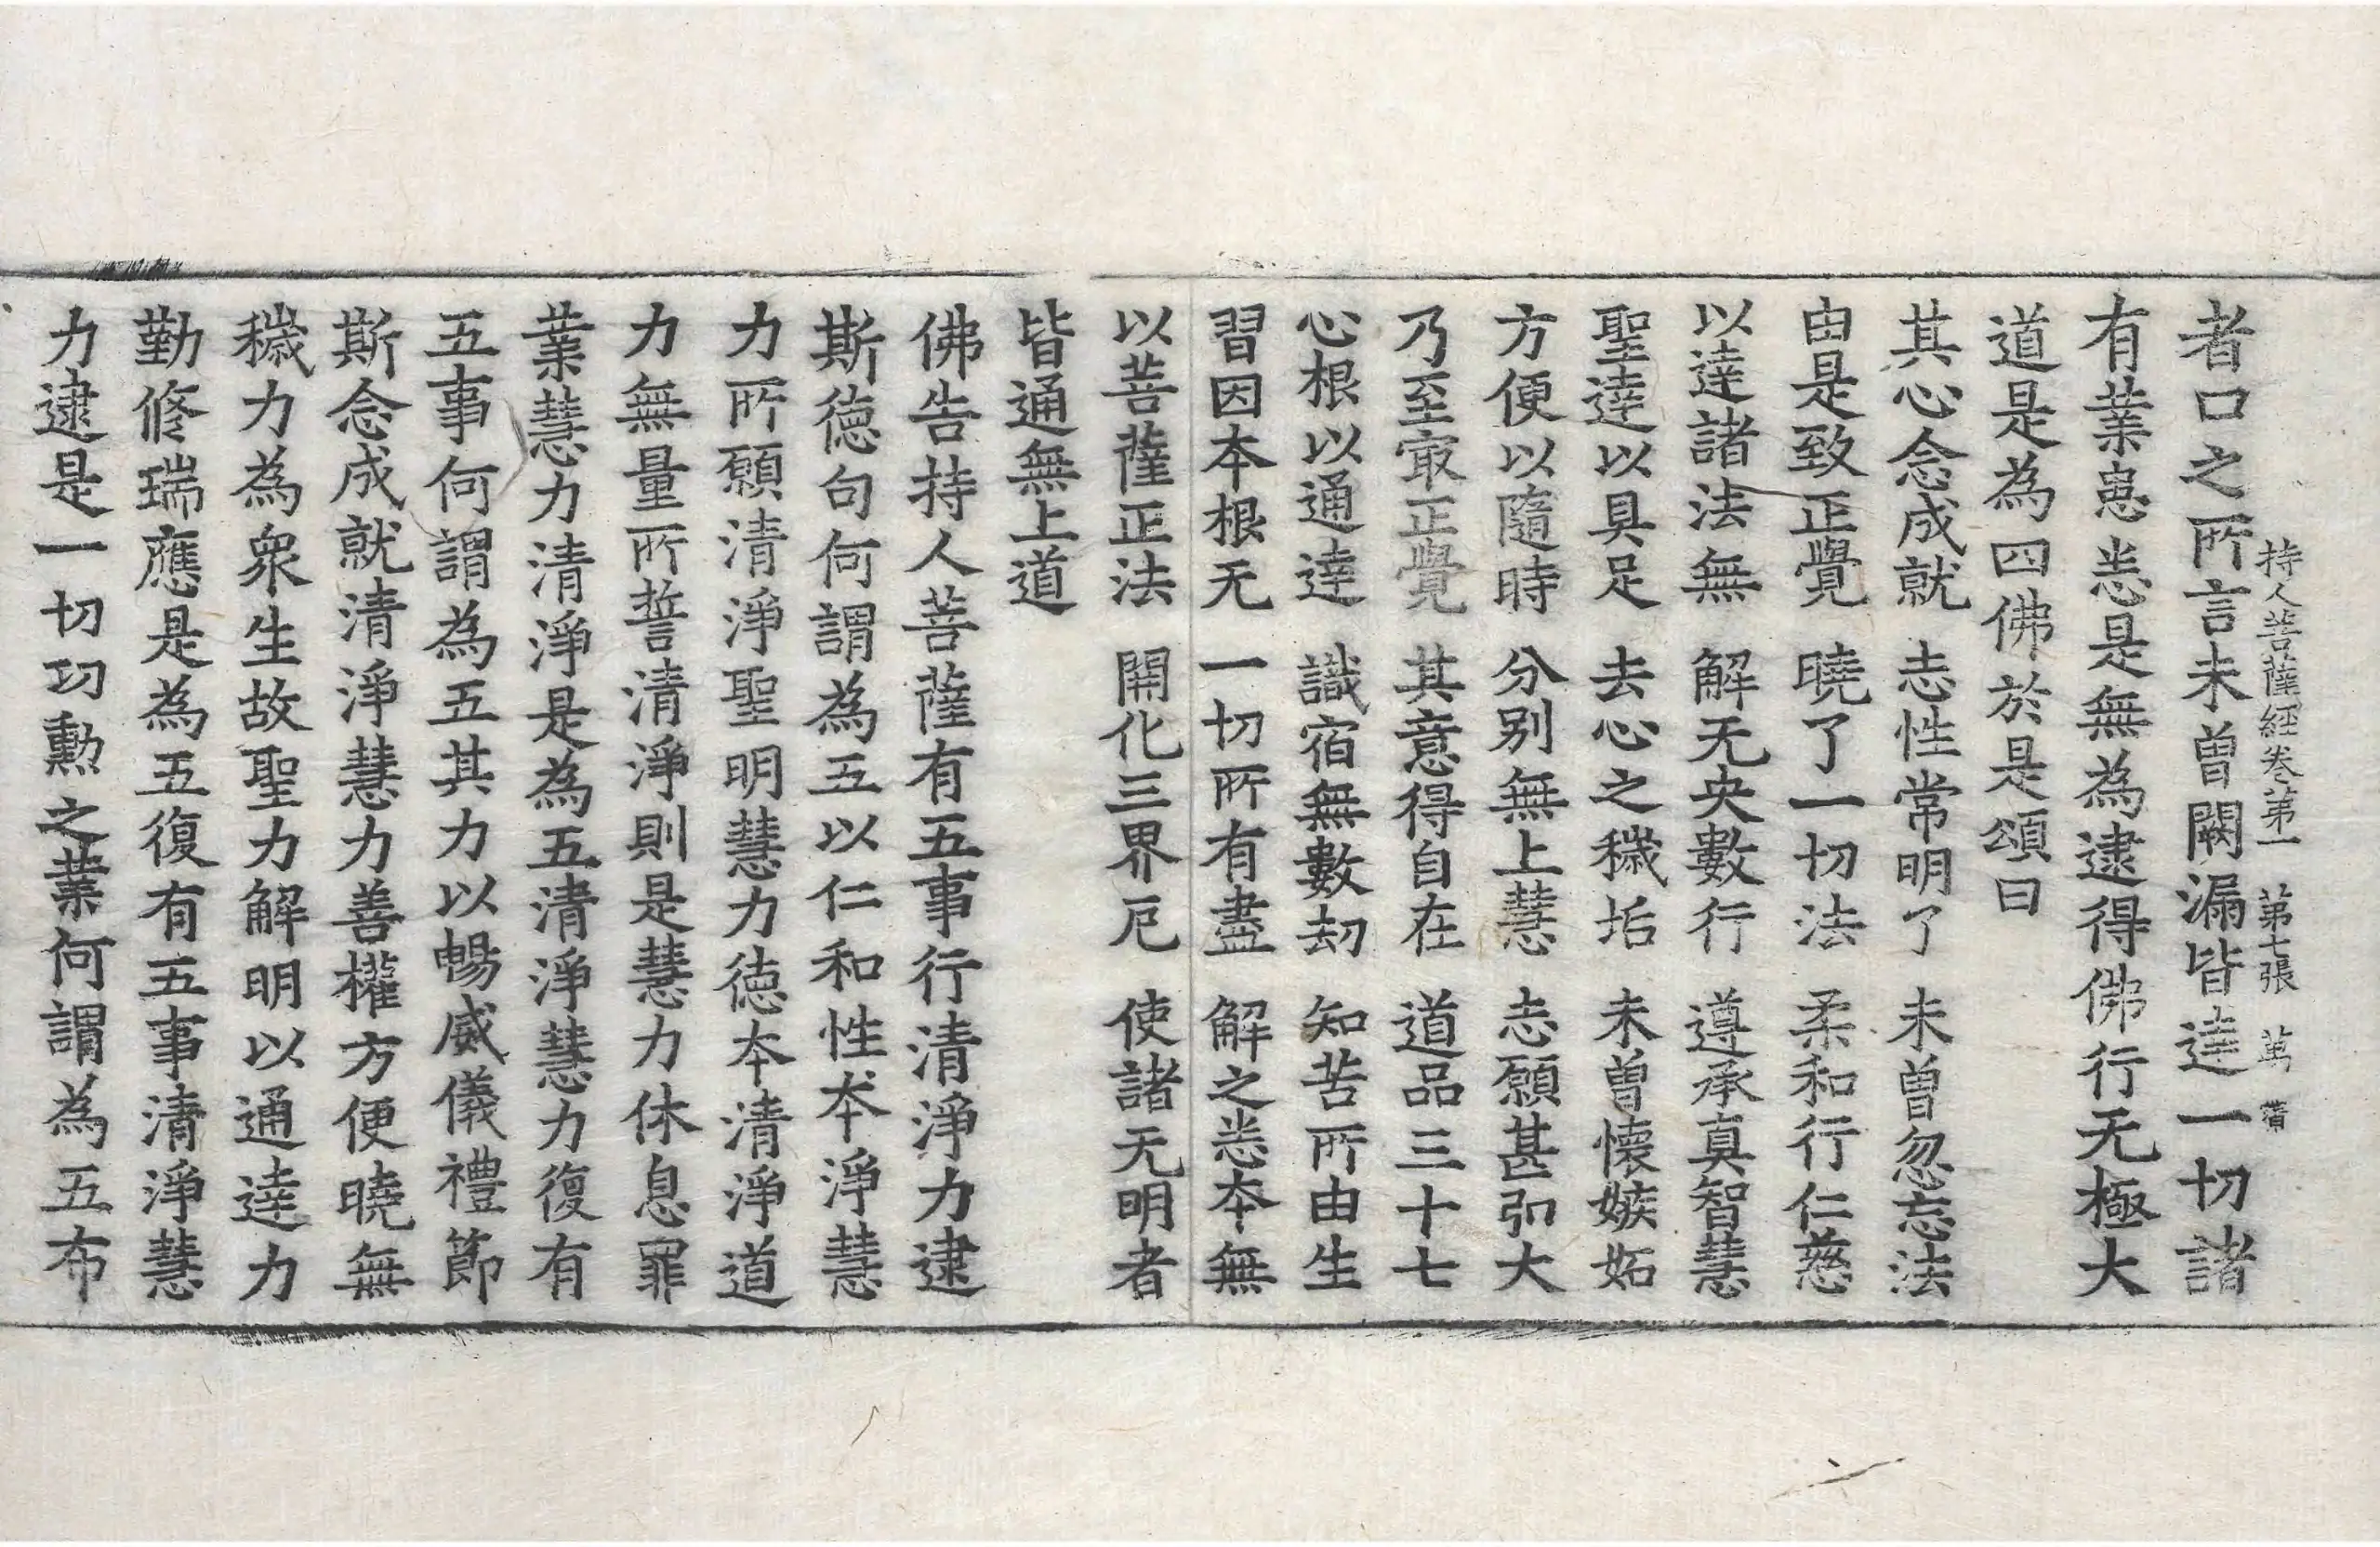 持人菩薩經卷第一 第七張 萬
者口之所言未曾闕漏皆達一切諸
有業患恙是無為逮得佛行无極大
道是為四佛於是頌曰
其心念成就 志性常明了 未曾忽忘法
由是致正覺 曉了一切法 柔和行仁慈
以達諸法無 解无央數行 遵承真智慧
聖達以具足 去心之穢垢 未曾懷嫉妬
方便以隨時 分別無上慧 志願甚弘大
乃至㝡正覺 其意得自在 道品三十七
心根以通達 識宿無數劫 知苦所由生
習因本根无 一切所有盡 解之悉本無
以菩薩正法 開化三界厄 使諸无明者
皆通無上道
佛告持人菩薩有五事行清淨力逮
斯德句何謂為五以仁和性本淨慧
力所願清淨聖明慧力德本清淨道
力無量所誓清淨則是慧力休息罪
業慧力清淨是為五清淨慧力復有
五事何謂為五其力以暢威儀禮節
斯念成就清淨慧力善權方便曉無
穢力為衆生故聖力解明以通達力
勤修瑞應是為五復有五事清淨慧
力逮是一切功勲之業何謂為五布